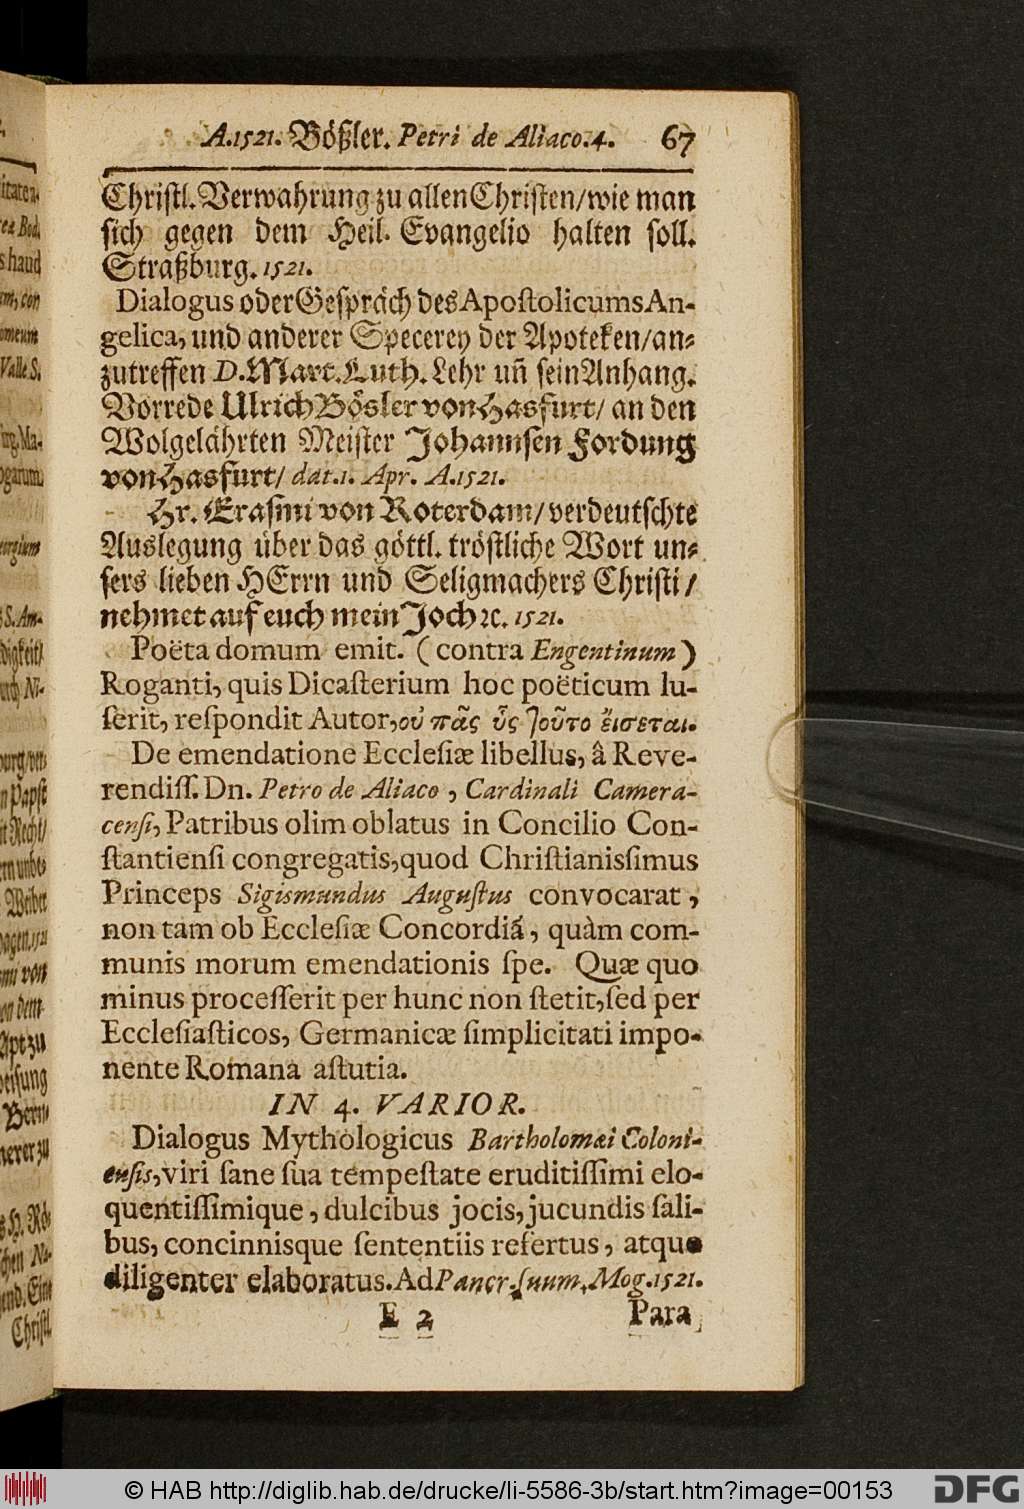 A. 1521. Bößler. Petri de Aliaco. 4. 67
Christl. Verwahrung zu allen Christen/wie man
sich gegen dem Heil. Evangelio halten soll.
Straßburg. 1521.
Dialogus oder Gespräch des Apostolicums An-
gelica, und anderer Specerey der Apoteken/an-
zutreffen D. Mart. Luth. Lehr uñ sein Anhang.
Vorrede Ulrich Bösler von Hasfurt/ an den
Wolgelährten Meister Johannsen Fordung
von Hasfurt/ dat. 1. Apr. A. 1521.
Hr. Erasmi von Roterdam/verdeutschte
Auslegung über das göttl. tröstliche Wort un-
sers lieben HErrn und Seligmachers Christi/
nehmet auf euch mein Joch ꝛc. 1521.
Poëta domum emit. (contra Engentinum)
Roganti, quis Dicasterium hoc poëticum lu-
serit, respondit Autor, οὐ πᾶς ὗς Τοῦτο ἔισεται.
De emendatione Ecclesiæ libellus, â Reve-
rendiss. Dn. Petro de Aliaco, Cardinali Camera-
censi, Patribus olim oblatus in Concilio Con-
stantiensi congregatis, quod Christianissimus
Princeps Sigismundus Augustus convocarat,
non tam ob Ecclesiæ Concordiã, quàm com-
munis morum emendationis spe. Quæ quo
minus processerit per hunc non stetit, sed per
Ecclesiasticos, Germanicæ simplicitati impo-
nente Romana astutia.
IN 4. VARIOR.
Dialogus Mythologicus Bartholomæi Coloni-
ensis, viri sane sua tempestate eruditissimi elo-
quentissimique, dulcibus jocis, jucundis sali-
bus, concinnisque sententiis refertus, atque
diligenter elaboratus. Ad Pancr. suum, Mog. 1521.
E 2 Para
© HAB http://diglib.hab.de/drucke/li-5586-3b/start.htm?image=00153
DFG